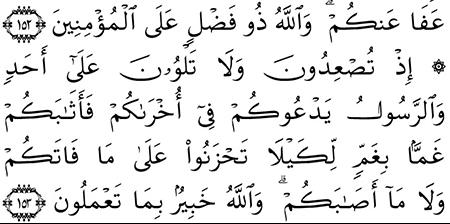 عَفَا عَنكُمْ ۗ وَٱللَّهُ ذُو فَضْلٍ عَلَى ٱلْمُؤْمِنِينَ ﴿١٥٢﴾
۞ إِذْ تُصْعِدُونَ وَلَا تَلْوُۥنَ عَلَىٰٓ أَحَدٍ
وَٱلرَّسُولُ يَدْعُوكُمْ فِىٓ أُخْرَىٰكُمْ فَأَثَٰبَكُمْ
غَمًّۢا بِغَمٍّ لِّكَيْلَا تَحْزَنُوا۟ عَلَىٰ مَا فَاتَكُمْ
وَلَا مَآ أَصَٰبَكُمْ ۗ وَٱللَّهُ خَبِيرٌۢ بِمَا تَعْمَلُونَ ﴿١٥٣﴾